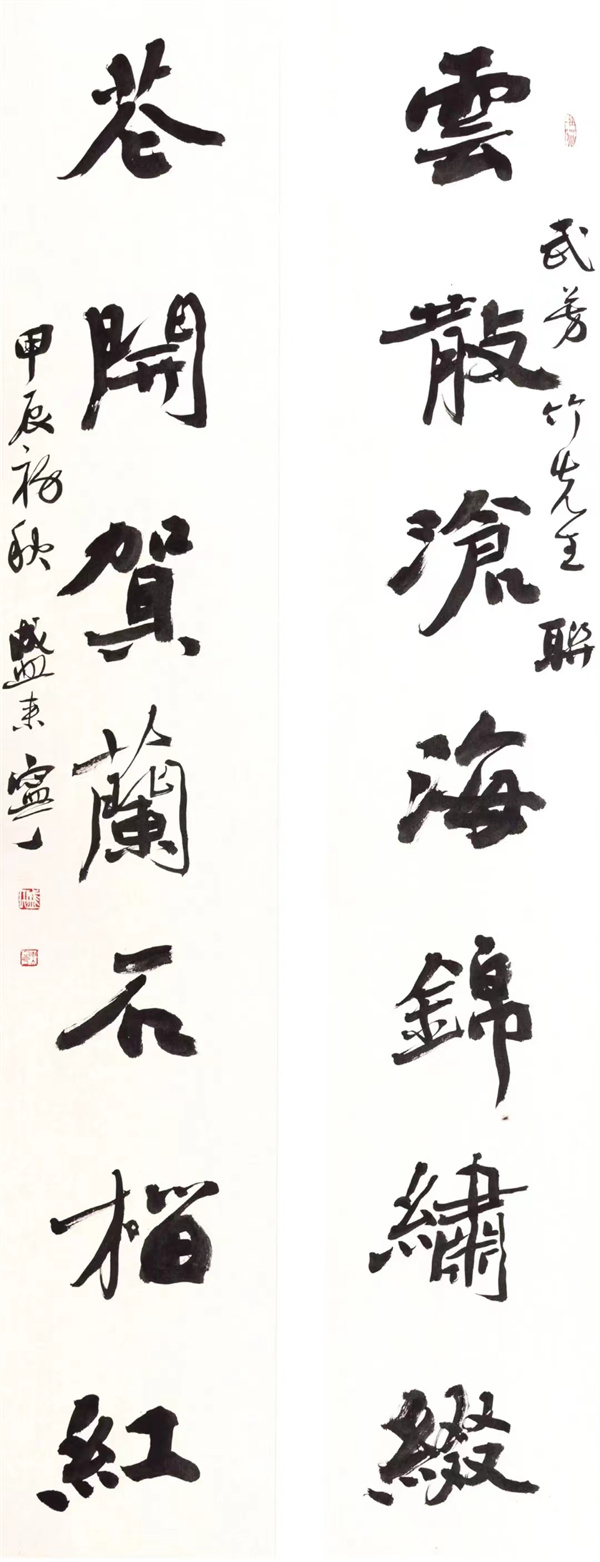 雲散滄海錦繡綴
武芳竹先生聯
花開賀蘭石榴紅
甲辰初秋 盛